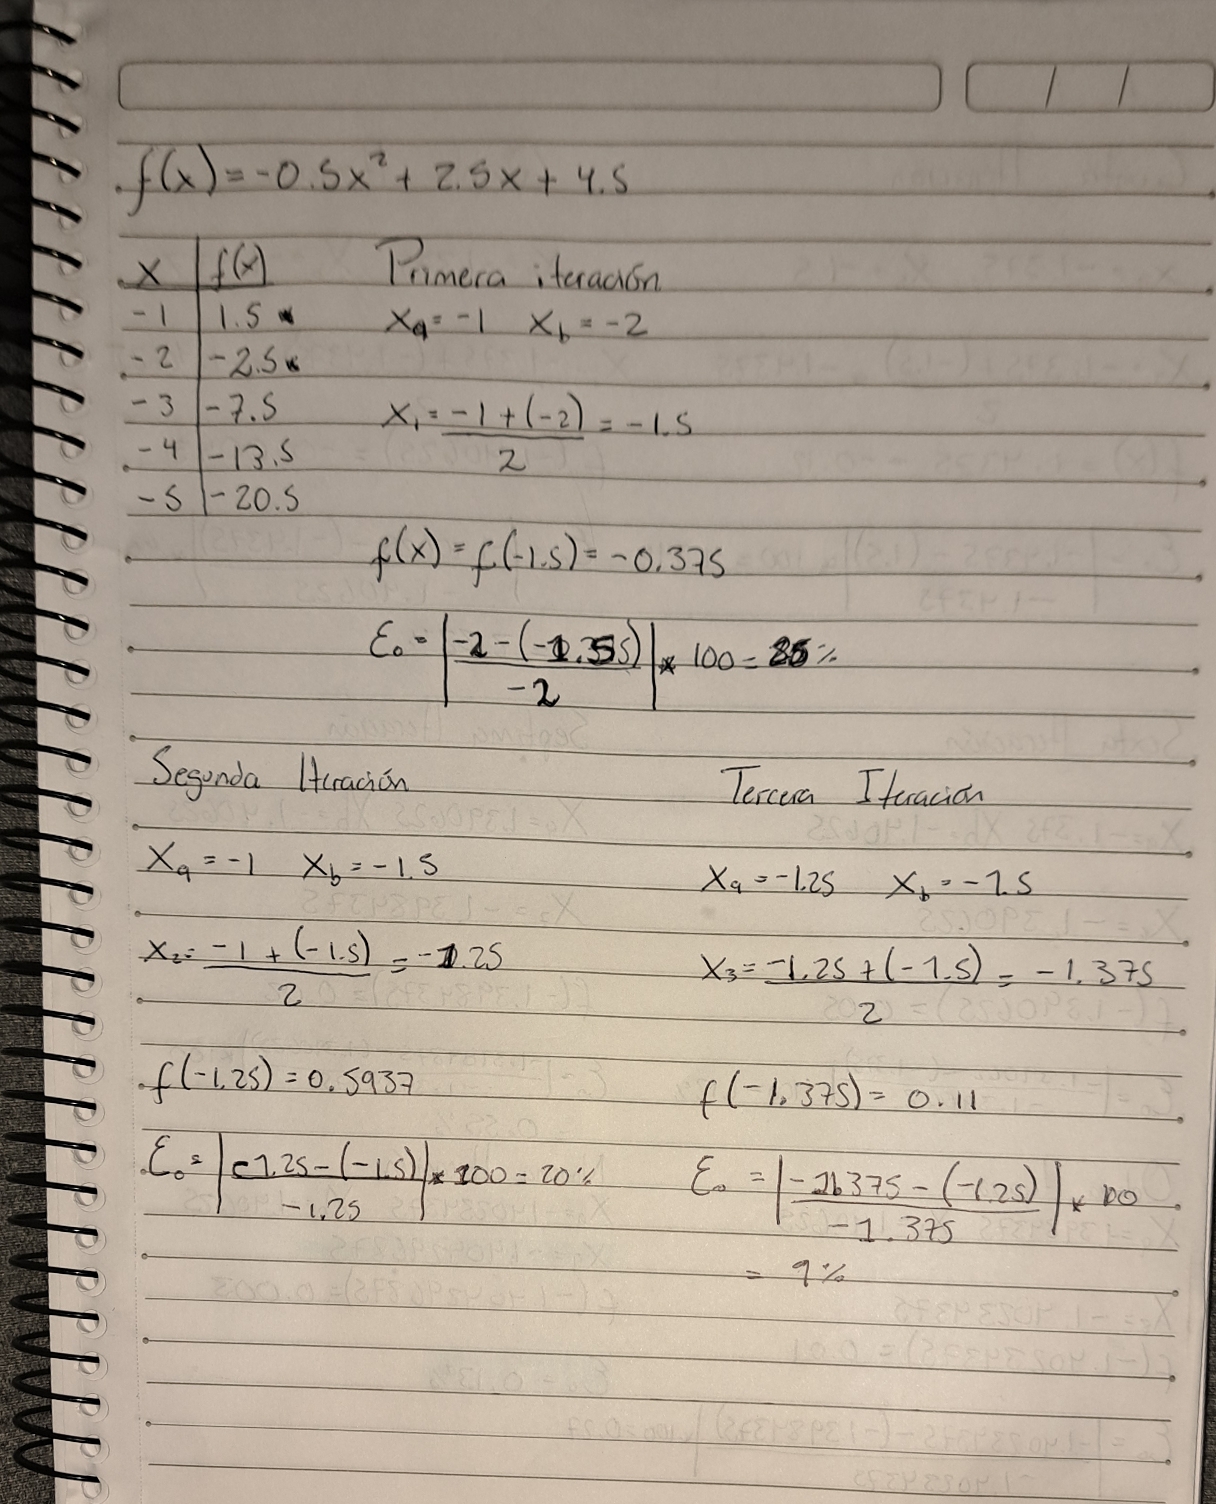 f(x)=-0.5x²+2.5x+4.5
x | f(x)
-1 | 1.5
-2 | -2.5
-3 | -7.5
-4 | -13.5
-5 | -20.5
Primera iteración
Xa=-1 Xb=-2
X₁=-1+(-2)=-1.5
2
f(x)=f(-1.5)=-0.375
100=
-2
Segunda Iteración
Xa=-1 Xb=-1.5
X₂=-1+(-1.5)=-1.25
2
f(-1.25)=0.5937
-1.25-(-1.5) * 100=20%
-1.25
Tercera Iteración
Xa=-1.25 Xb=-1.5
X₃=-1.25+(-1.5)=-1.375
2
f(-1.375)=0.11
-(-1.25) * 100
-1.375
=9%